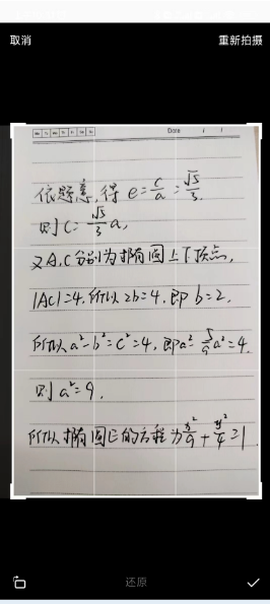 取消 重新拍摄
Date
依题意,得 e=c/a=√5/3,
则 c=√5/3 a,
又A,C分别为椭圆上下顶点,
|AC|=4,所以 2b=4,即 b=2,
所以 a²-b²=c²=4,即a²-5/9a²=4,
则 a²=9,
所以椭圆E的方程为x²/9+y²/4=1
还原